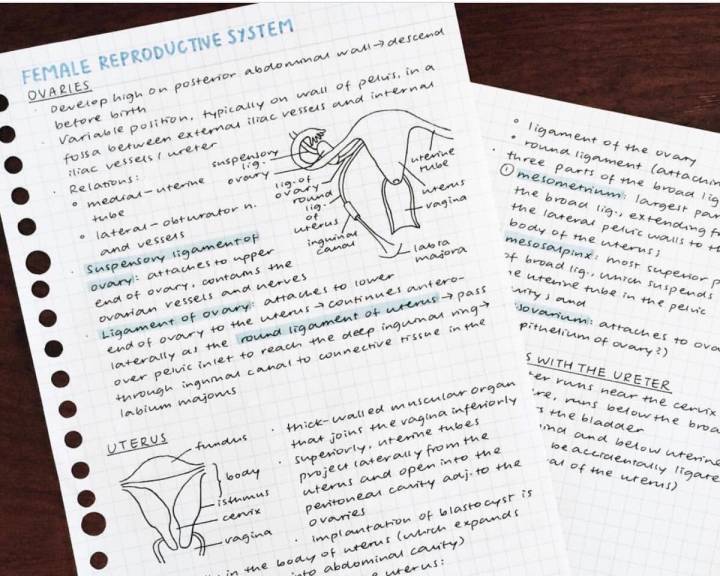 FEMALE REPRODUCTIVE SYSTEM
OVARIES
· Develop high on posterior abdominal wall → descend
before birth
· Variable position, typically on wall of pelvis, in a
fossa between external iliac vessels and internal
iliac vessels / ureter
· Relations:
• medial-uterine
tube
• lateral-obturator n.
and vessels
· Suspensory ligament of
ovary: attaches to upper
end of ovary, contains the
ovarian vessels and nerves
· Ligament of ovary: attaches to lower
end of ovary to the uterus → continues antero-
laterally as the round ligament of uterus → pass
over pelvic inlet to reach the deep inguinal ring →
through inguinal canal to connective tissue in the
labium majorus
suspensory
lig.
ovary
lig. of
ovary
round
lig.
of
uterus
inguinal
canal
uterine
tube
uterus
vagina
labra
majora
UTERUS
fundus
body
isthmus
cervix
vagina
· thick-walled muscular organ
that joins the vagina inferiorly
· superiorly, uterine tubes
project laterally from the
uterus and open into the
peritoneal cavity adj. to the
ovaries
· Implantation of blastocyst is
in the body of uterus (which expands
into abdominal cavity)
uterus:
• ligament of the ovary
• round ligament (attachin
three parts of the broad lig
① mesometrium: largest par
the broad lig., extending fr
the lateral pelvic walls to th
body of the uterus;
mesosalpinx: most superior p
of broad lig., which suspends
e uterine tube in the pelvic
vity; and
sovarium: attaches to ova
pithelium of ovary?)
S WITH THE URETER
ter runs near the cervix
re, runs below the broa
rs the bladder
ind and below uterine
be accidenally ligate
al of the uterus)